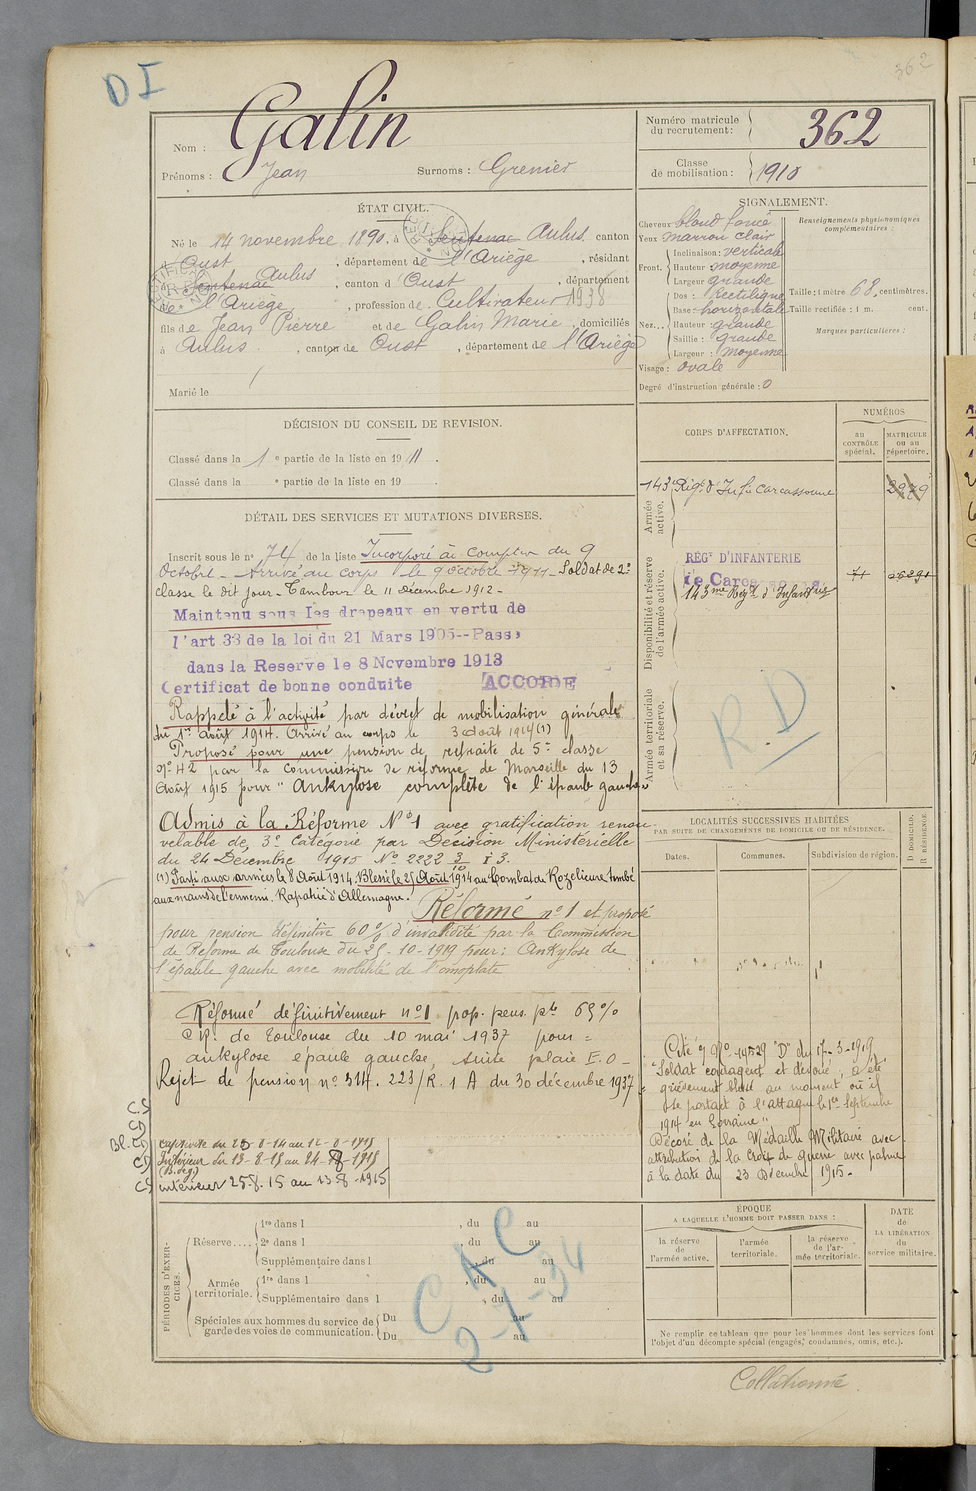 DI
362
Nom : Galin
Prénoms : Jean Surnoms : Grenier
Numéro matricule du recrutement : 362
Classe de mobilisation : 1910
ÉTAT CIVIL.
Né le 14 novembre 1890, à Sentenac Aulus, canton
Oust, département de l'Ariège, résidant
à Sentenac Aulus, canton d'Oust, département
de l'Ariège, profession de Cultivateur 1938
fils de Jean Pierre et de Galin Marie, domiciliés
à Aulus, canton de Oust, département de l'Ariège
Marié le /
SIGNALEMENT.
Cheveux blond foncé
Yeux marron clair
Front. Inclinaison : verticale
Hauteur : moyenne
Largeur : grande
Nez... Dos : Rectiligne
Base : horizontale
Hauteur : grande
Saillie : grande
Largeur : moyenne
Visage : ovale
Degré d'instruction générale : 0
Renseignements physionomiques complémentaires :
Taille : 1 mètre 68, centimètres.
Taille rectifiée : 1 m. cent.
Marques particulières :
DÉCISION DU CONSEIL DE REVISION.
Classé dans la 1e partie de la liste en 1911.
Classé dans la e partie de la liste en 19 .
CORPS D'AFFECTATION.
NUMÉROS
au CONTRÔLE spécial.
MATRICULE ou au répertoire.
Armée active.
143e Rég. d'Inf. à Carcassonne
Disponibilité et réserve de l'armée active.
RÉGt D'INFANTERIE
de Carcassonne
143me Régt d'Infanterie 71
Armée territoriale et sa réserve.
R.D
DÉTAIL DES SERVICES ET MUTATIONS DIVERSES.
Inscrit sous le n° 74 de la liste Incorporé à compter du 9
Octobre - Arrivé au corps le 9 octobre 1911 - Soldat de 2e
classe le dit jour - Tambour le 11 Décembre 1912 -
Maintenu sous les drapeaux en vertu de
l'art 33 de la loi du 21 Mars 1905--Passé
dans la Reserve le 8 Novembre 1913
Certificat de bonne conduite ACCORDÉ
Rappelé à l'activité par décret de mobilisation générale
du 1er Août 1914. Arrivé au corps le 3 août 1914 (1)
Proposé pour une pension de retraite de 5e classe
N° 42 par la Commission de réforme de Marseille du 13
Août 1915 pour "Ankylose complète de l'épaule gauche"
Admis à la Réforme N°1 avec gratification renou-
velable de 3e Catégorie par Décision Ministérielle
du 24 Décembre 1915 N° 2222 3/10 I 3.
(1) Parti aux armées le 8 Août 1914. Blessé le 25 Août 1914 au Combat de Rozelieure tombé
aux mains de l'ennemi. Rapatrié d'Allemagne.
Réformé n°1 et proposé
pour pension définitive 60% d'invalidité par la Commission
de Réforme de Toulouse du 25-10-1919 pour : Ankylose de
l'épaule gauche avec mobilité de l'omoplate
Réformé définitivement n°1 prop. pens. pte 65%
CR. de Toulouse du 10 mai 1937 pour =
ankylose épaule gauche, suite plaie E.O -
Rejet de pension n° 514. 223/R. 1 A du 30 décembre 1937
captivité du 25-8-14 au 12-8-1915
Intérieur du 13-8-15 au 24-8-1915
intérieur 25.8.15 au 13-8-1915
LOCALITÉS SUCCESSIVES HABITÉES
PAR SUITE DE CHANGEMENTS DE DOMICILE OU DE RÉSIDENCE.
Dates. Communes. Subdivision de région. D DOMICILE. R RÉSIDENCE.
Cité O N° 14529 "D" du 17-3-1919
"Soldat courageux et dévoué, a été
grièvement blessé au moment où il
se portait à l'attaque le 1er Septembre
1914 en Lorraine"
Décoré de la Médaille Militaire avec
attribution de la Croix de guerre avec palme
à la date du 23 Décembre 1915-
PÉRIODES D'EXERCICES.
Réserve.... 1re dans l , du au
2e dans l , du au
Supplémentaire dans l , du au
Armée territoriale. 1re dans l , du au
Supplémentaire dans l , du au
Spéciales aux hommes du service de garde des voies de communication. Du au
Du au
CAC
2-7-34
ÉPOQUE
A LAQUELLE L'HOMME DOIT PASSER DANS :
la réserve de l'armée active.
l'armée territoriale.
la réserve de l'armée territoriale.
DATE de LA LIBÉRATION du service militaire.
Ne remplir ce tableau que pour les hommes dont les services font
l'objet d'un décompte spécial (engagés, condamnés, omis, etc.).
Collationné